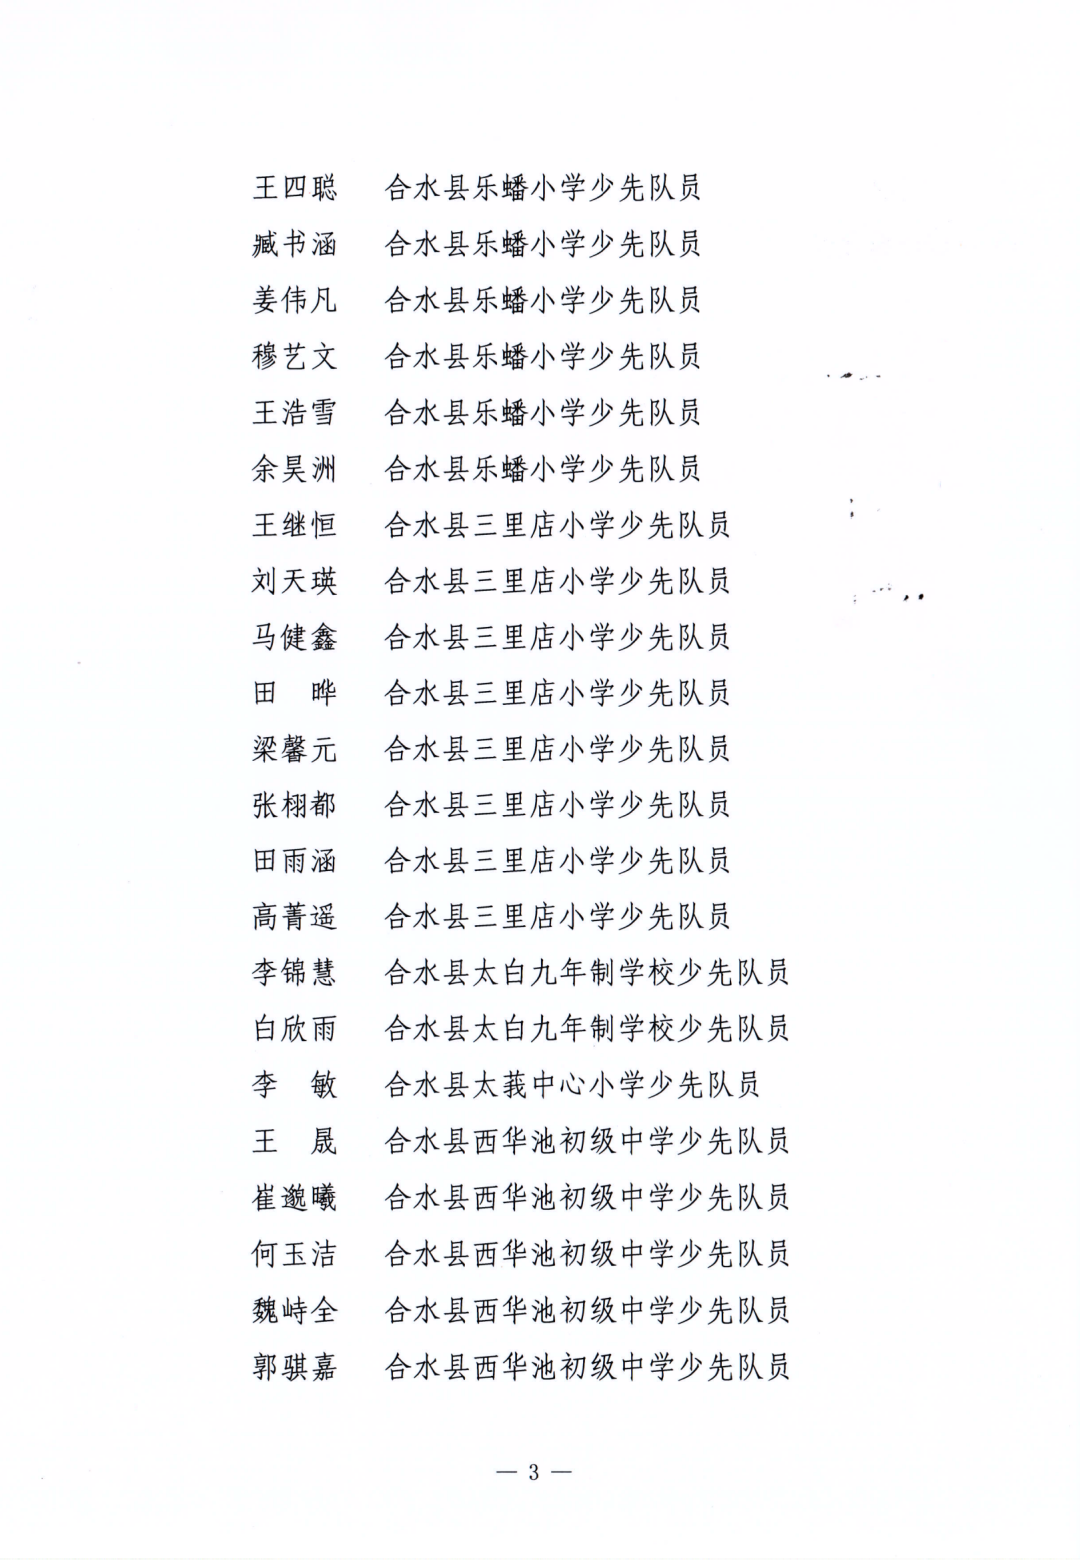 王四聪 合水县乐蟠小学少先队员
臧书涵 合水县乐蟠小学少先队员
姜伟凡 合水县乐蟠小学少先队员
穆艺文 合水县乐蟠小学少先队员
王浩雪 合水县乐蟠小学少先队员
余昊洲 合水县乐蟠小学少先队员
王继恒 合水县三里店小学少先队员
刘天瑛 合水县三里店小学少先队员
马健鑫 合水县三里店小学少先队员
田　晔 合水县三里店小学少先队员
梁馨元 合水县三里店小学少先队员
张栩都 合水县三里店小学少先队员
田雨涵 合水县三里店小学少先队员
高菁遥 合水县三里店小学少先队员
李锦慧 合水县太白九年制学校少先队员
白欣雨 合水县太白九年制学校少先队员
李　敏 合水县太莪中心小学少先队员
王　晟 合水县西华池初级中学少先队员
崔邈曦 合水县西华池初级中学少先队员
何玉洁 合水县西华池初级中学少先队员
魏峙全 合水县西华池初级中学少先队员
郭骐嘉 合水县西华池初级中学少先队员
— 3 —